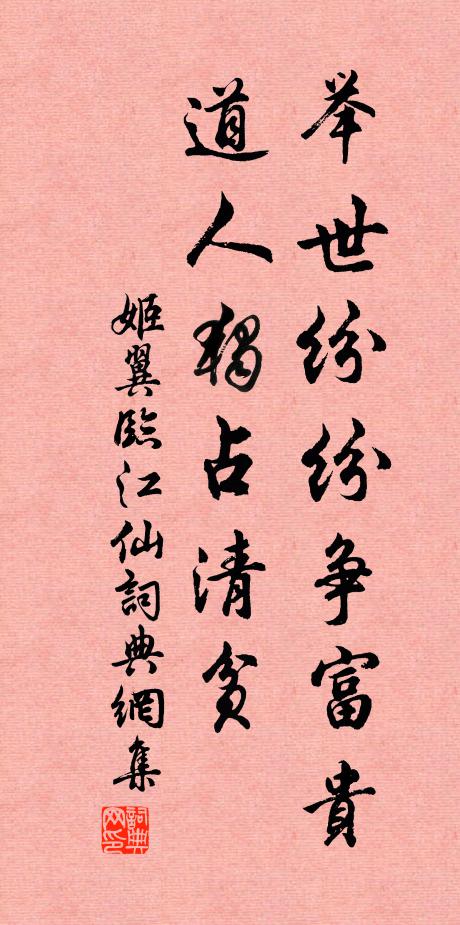 举世纷纷争富貴
道人獨占清貧
姬翼臨江仙詞典網集
詞典网印